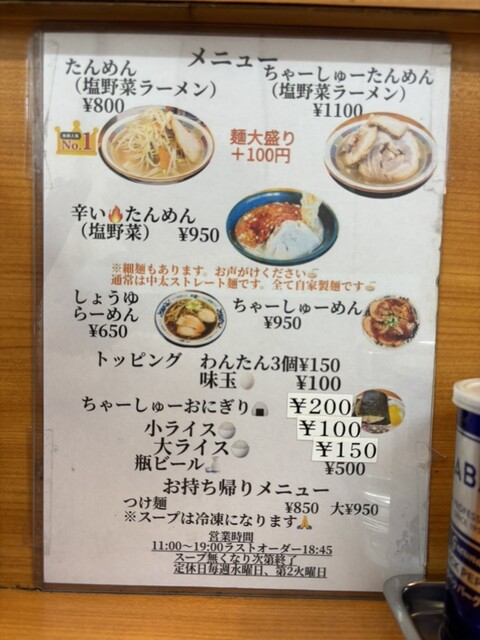 メニュー
たんめん
（塩野菜ラーメン）
¥800
ちゃーしゅーたんめん
（塩野菜ラーメン）
¥1100
No.1
麺大盛り
＋100円
辛い🔥たんめん
（塩野菜） ¥950
※細麺もあります。お声がけください🍜
通常は中太ストレート麺です。全て自家製麺です🍜
しょうゆ
らーめん
¥650
ちゃーしゅーめん
¥950
トッピング わんたん3個¥150
味玉🥚 ¥100
ちゃーしゅーおにぎり🍙 ¥200
小ライス🍚 ¥100
大ライス🍚 ¥150
瓶ビール🍶 ¥500
お持ち帰りメニュー
つけ麺 ¥850 大¥950
※スープは冷凍になります🙏
営業時間
11:00〜19:00ラストオーダー18:45
スープ無くなり次第終了
定休日毎週水曜日、第2火曜日